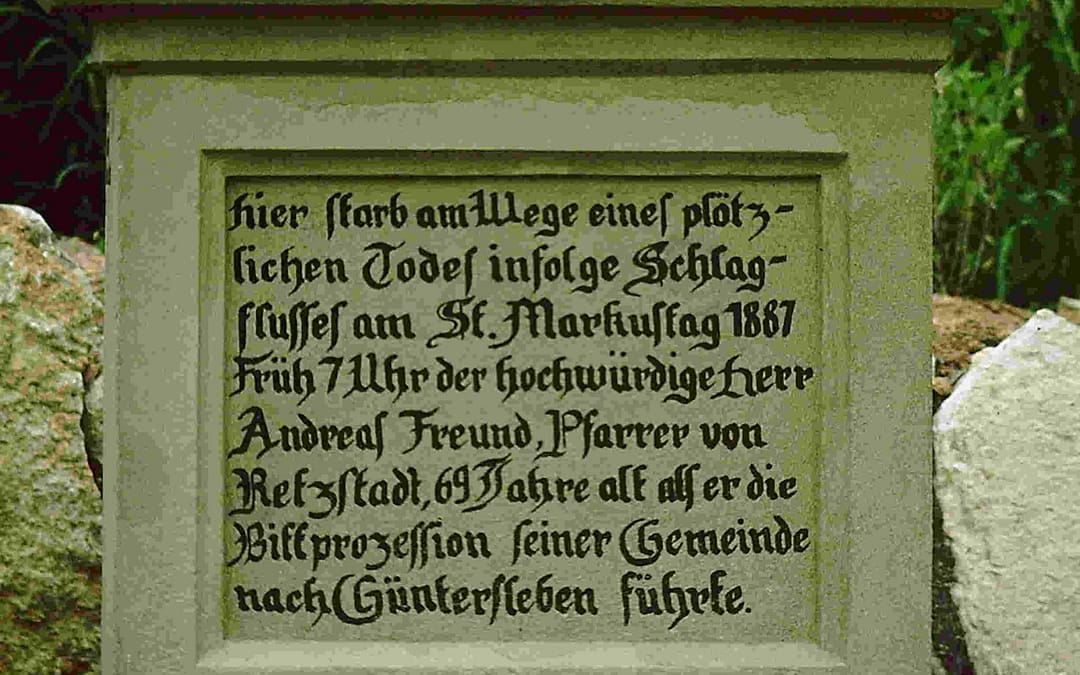 hier ſtarb am Wege eineſ plötz-
lichen Todeſ infolge Schlag-
fluſſeſ am St. Markuſtag 1887
Früh 7 Uhr der hochwürdige Herr
Andreaſ Freund, Pfarrer von
Retzſtadt, 69 Jahre alt alſ er die
Bittprozeſſion ſeiner Gemeinde
nach Günterſleben führte.